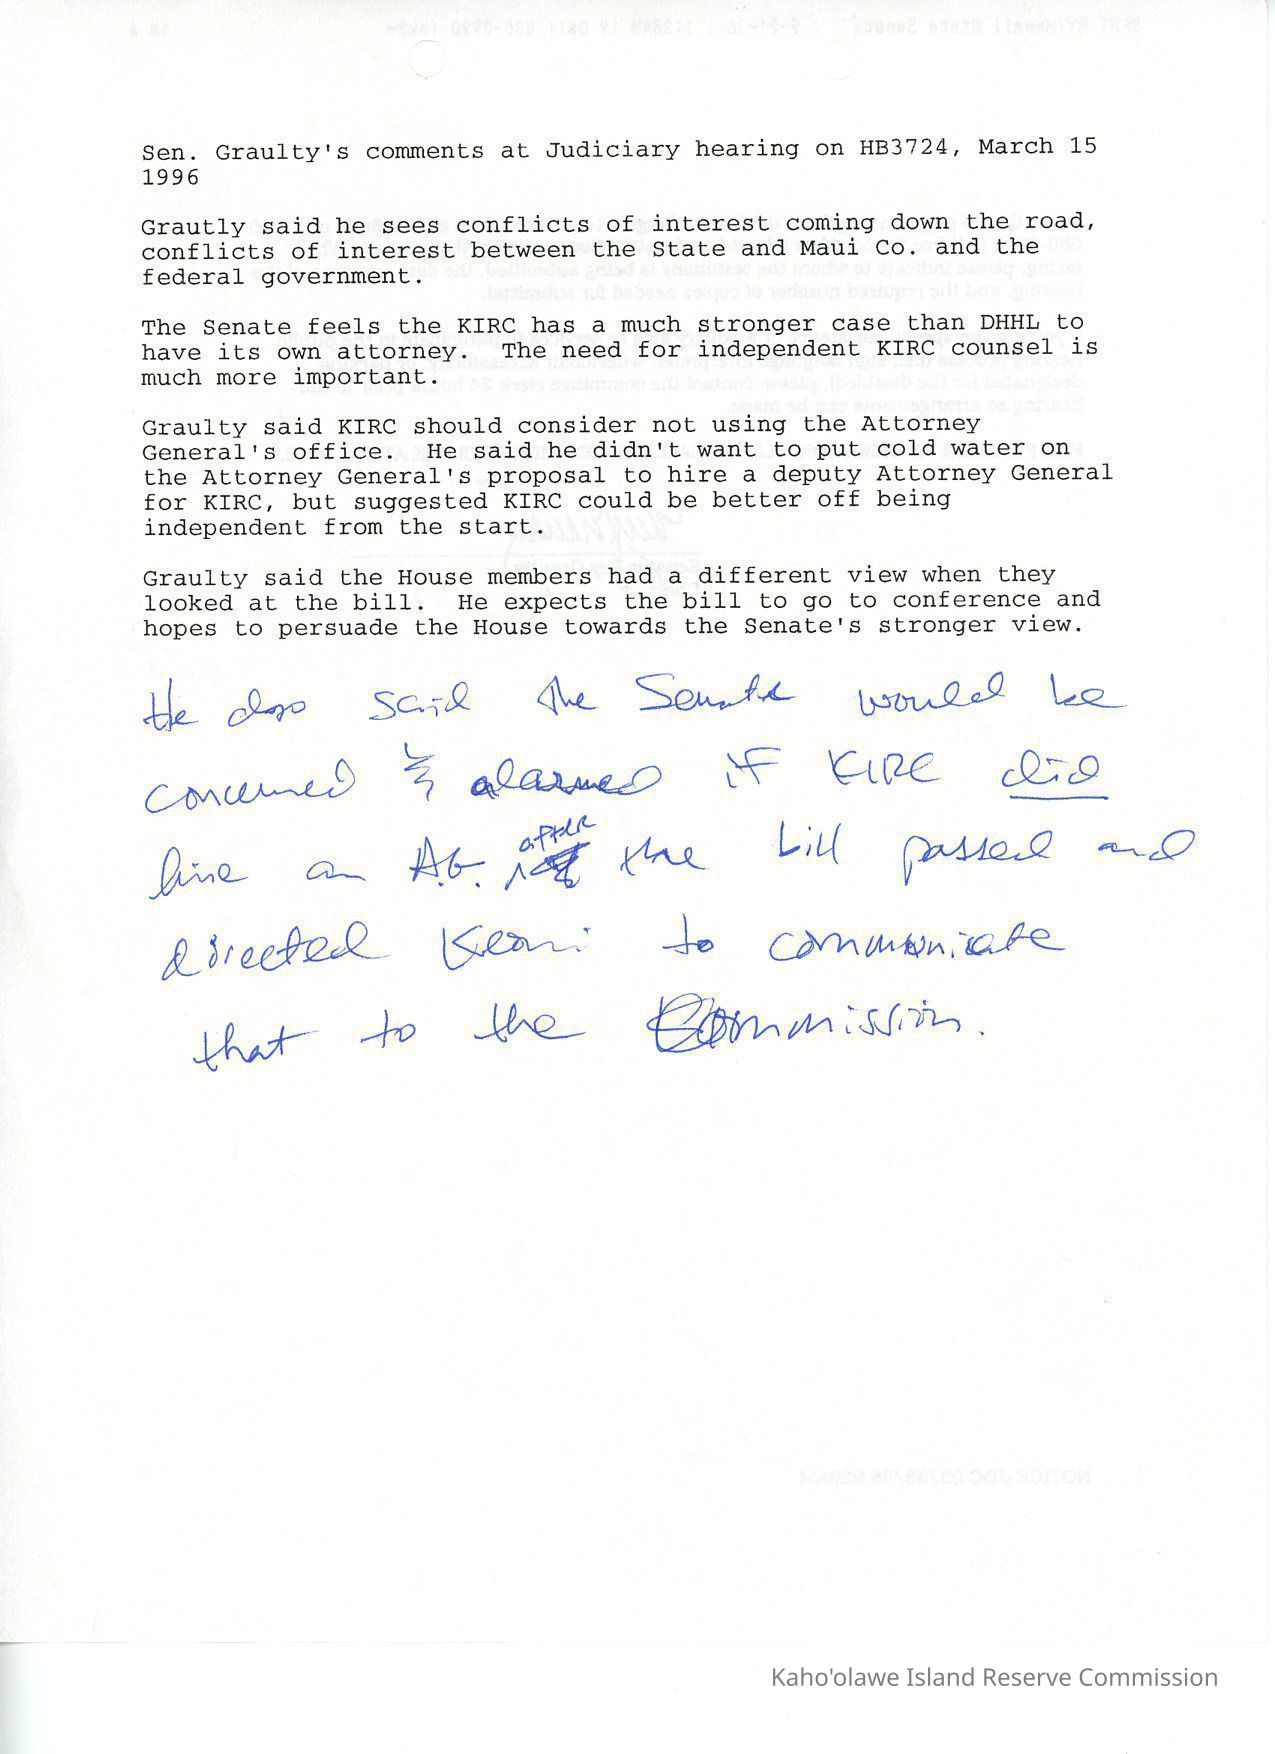 Sen. Graulty's comments at Judiciary hearing on HB3724, March 15
1996
Grautly said he sees conflicts of interest coming down the road,
conflicts of interest between the State and Maui Co. and the
federal government.
The Senate feels the KIRC has a much stronger case than DHHL to
have its own attorney. The need for independent KIRC counsel is
much more important.
Graulty said KIRC should consider not using the Attorney
General's office. He said he didn't want to put cold water on
the Attorney General's proposal to hire a deputy Attorney General
for KIRC, but suggested KIRC could be better off being
independent from the start.
Graulty said the House members had a different view when they
looked at the bill. He expects the bill to go to conference and
hopes to persuade the House towards the Senate's stronger view.
He also said the Senate would be
concerned & alarmed if KIRC did
hire an A.G. after the bill passed and
directed Keoni to communicate
that to the Commission.
NOTICE JDC 
Kaho'olawe Island Reserve Commission